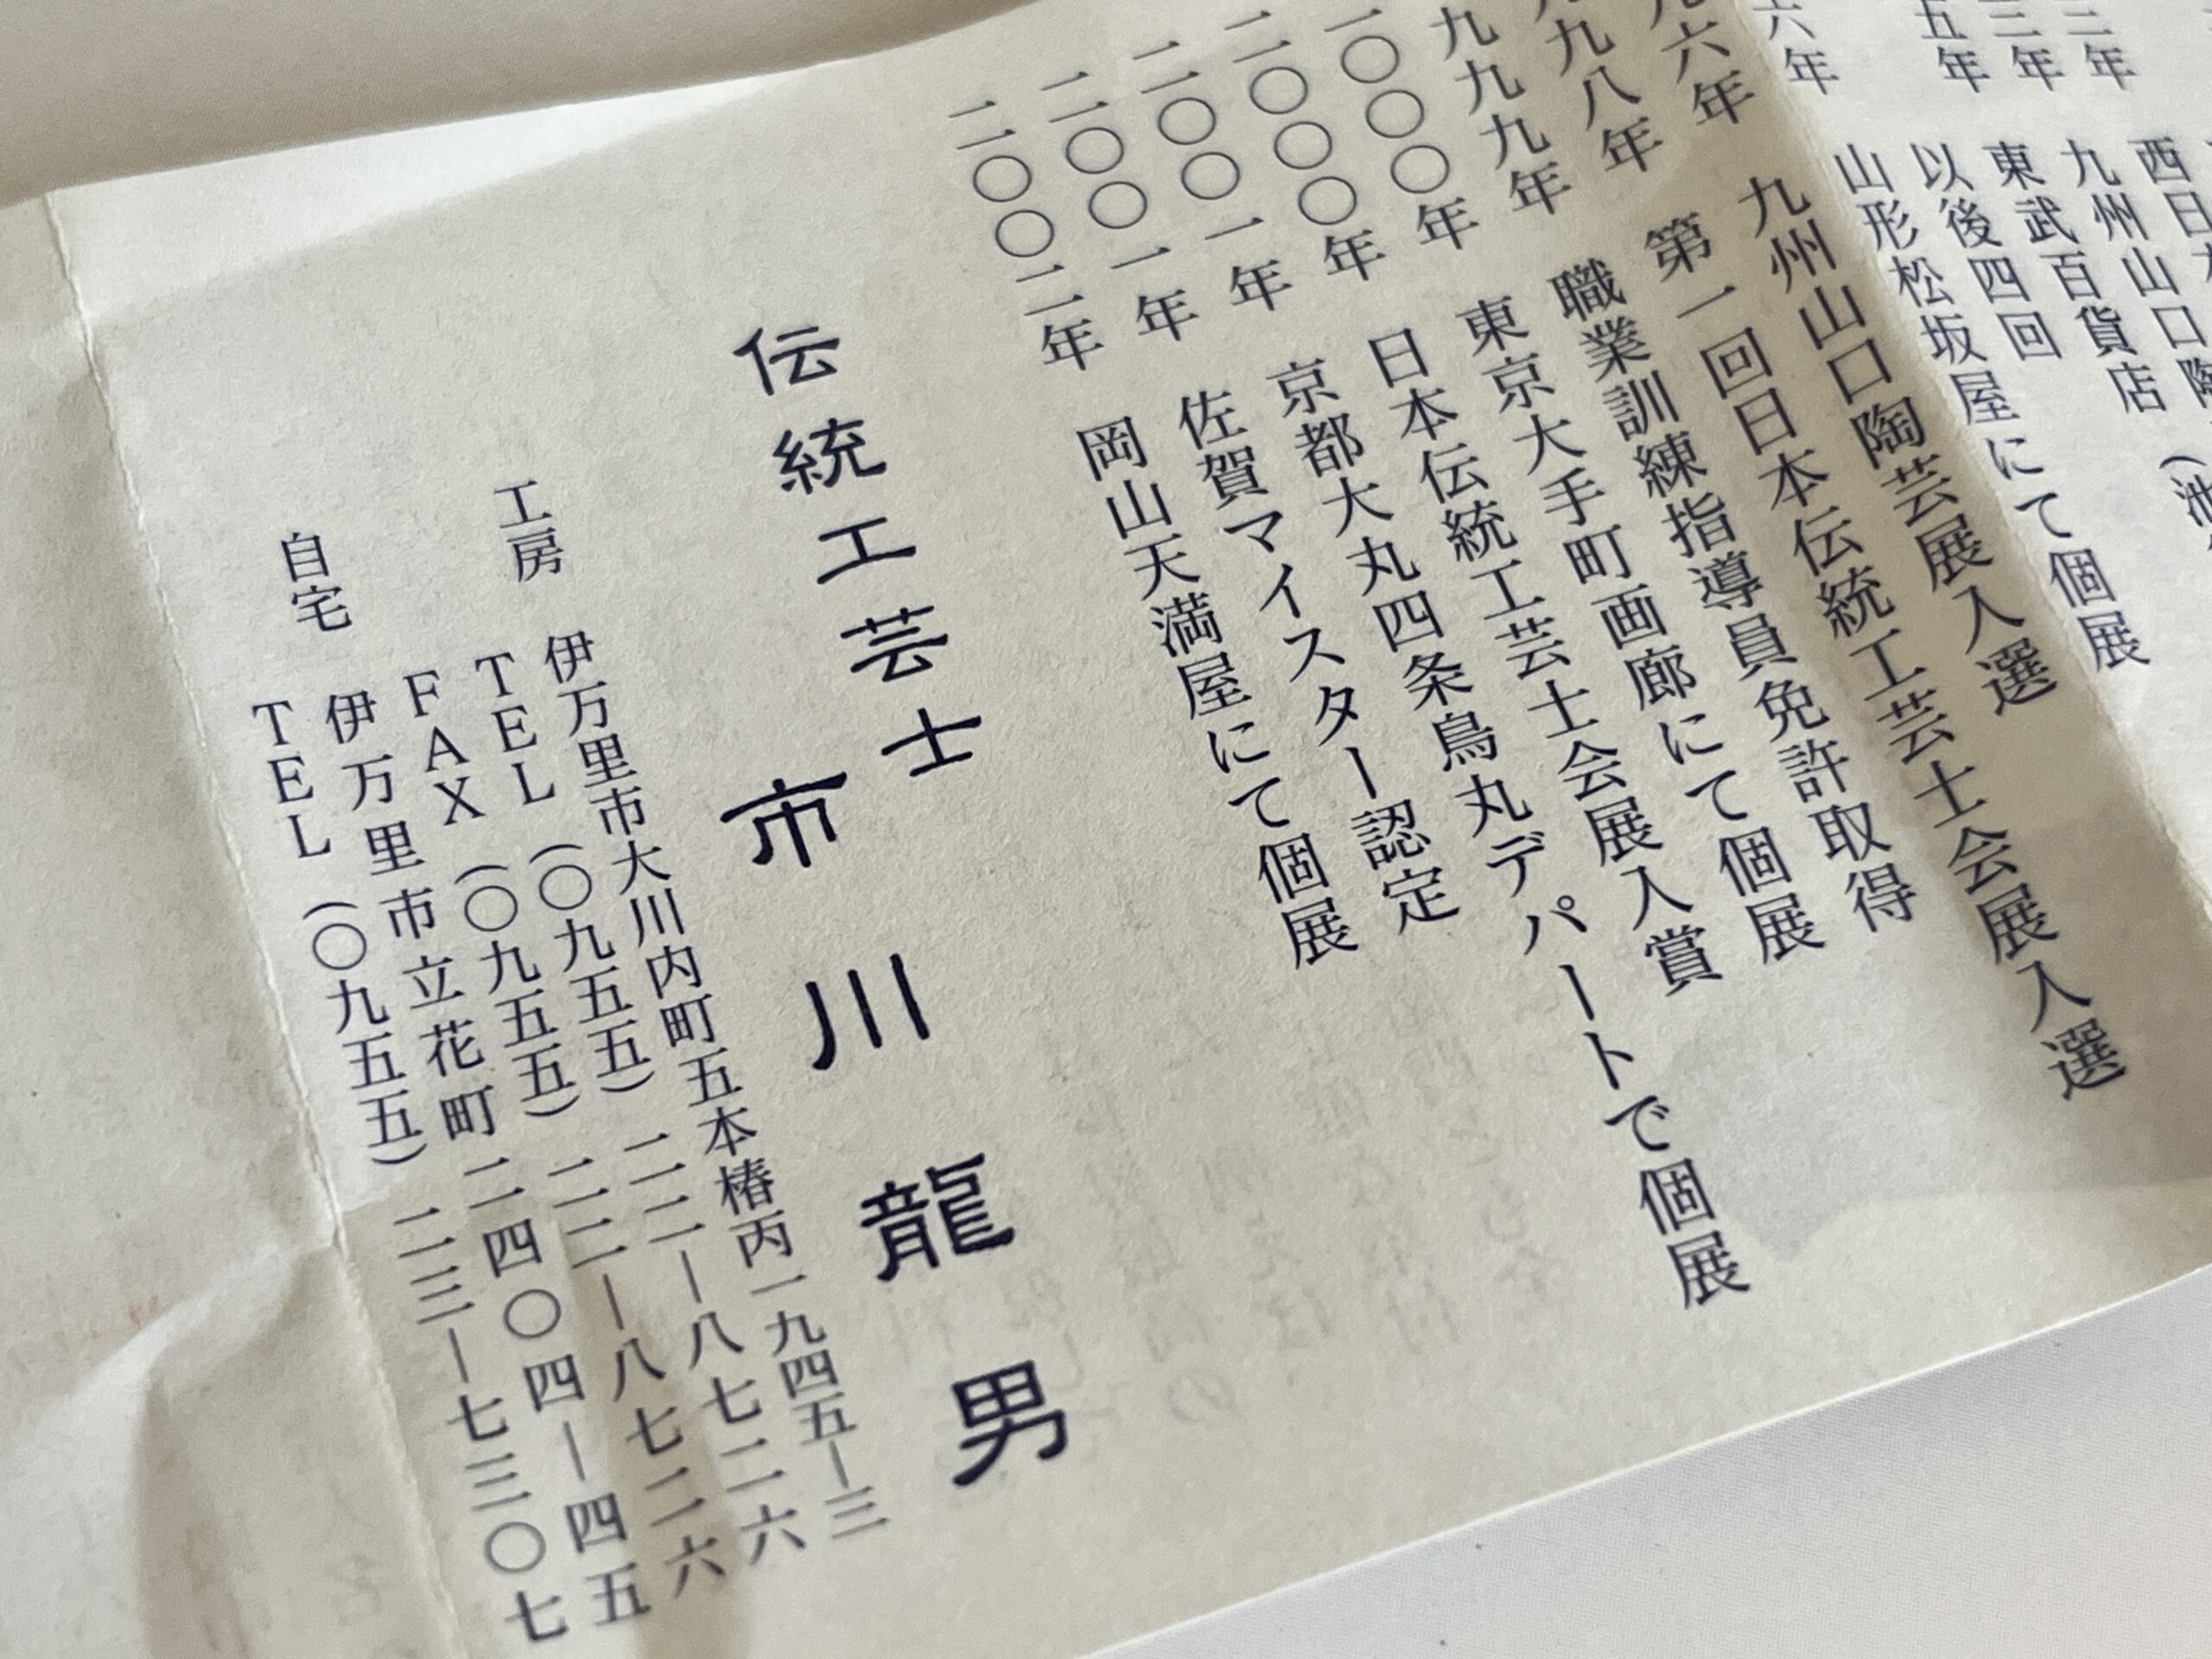 三年 西日
三年 九州山口陶
五年 東武百貨店 (池
以後四回
六年 山形松坂屋にて個展
九六年 九州山口陶芸展入選
九八年 第一回日本伝統工芸士会展入選
九九九年 職業訓練指導員免許取得
〇〇〇年 東京大手町画廊にて個展
二〇〇〇年 日本伝統工芸士会展入賞
二〇〇一年 京都大丸四条鳥丸デパートで個展
二〇〇一年 佐賀マイスター認定
二〇〇二年 岡山天満屋にて個展
伝統工芸士 市川龍男
工房 伊万里市大川内町五本椿丙一九四五―三
TEL (〇九五五) 二二―八七二六
FAX (〇九五五) 二二―八七二六
自宅 伊万里市立花町二四〇四―四五
TEL (〇九五五) 二三―七三〇七